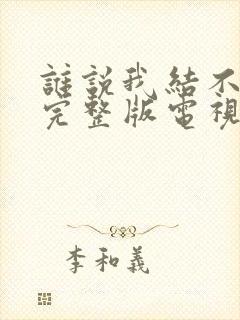 誰說我結不
完整版電視
李和義